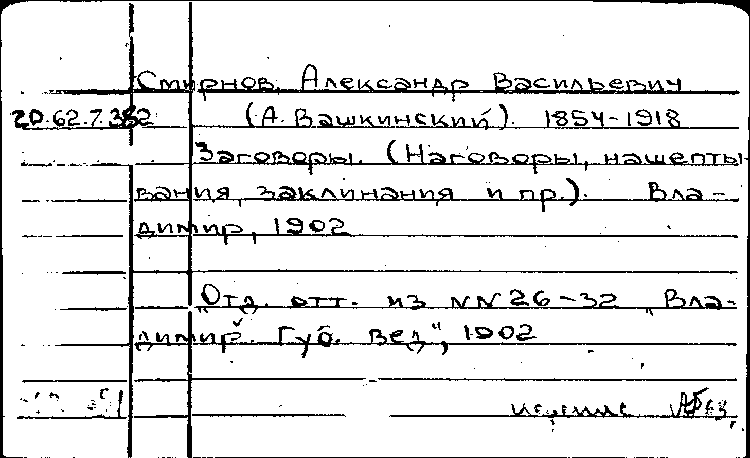 Смирнов, Александр Васильевич
20.62.7.352 (А. Вашкинский). 1854-1918
Заговоры. (Наговоры, нашепты-
вания, заклинания и пр.). Вла-
димир, 1902
"Отд. отт. из NN 26-32 „Вла-
димир. Губ. Вед", 1902